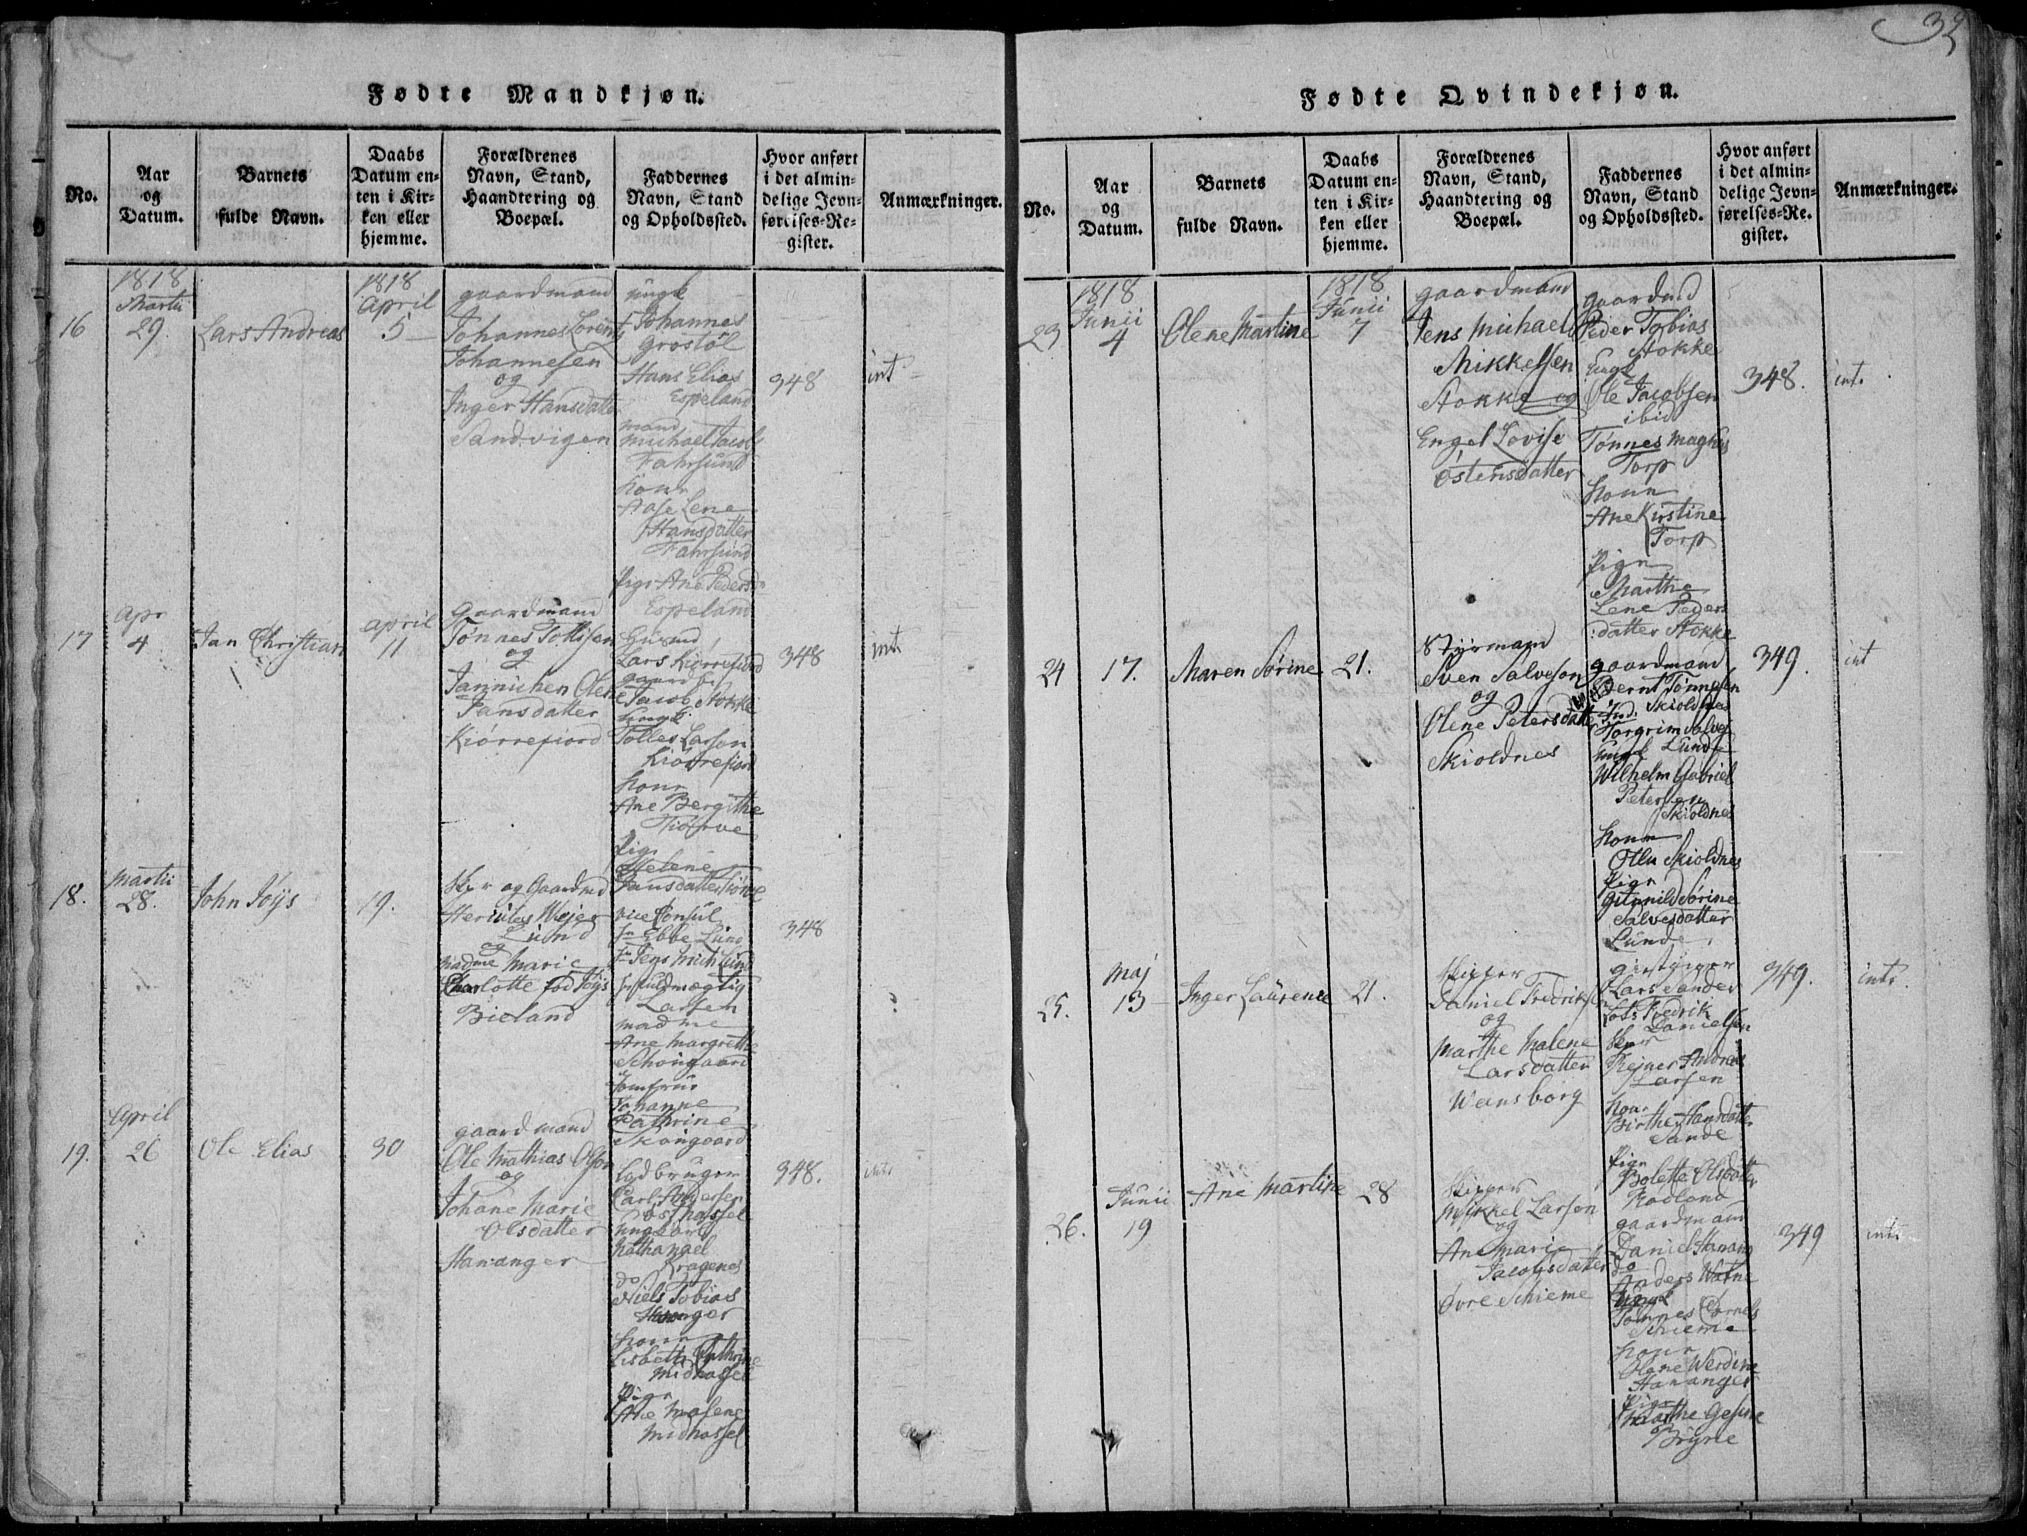 32
Fødte Mandkjøn.
No.
Aar
og
Datum.
Barnets
fulde Navn.
Daabs
Datum en-
ten i Kir-
ken eller
hjemme.
Forældrenes
Navn, Stand,
Haandtering og
Boepæl.
Faddernes
Navn, Stand
og Opholdssted.
Hvor anført
i det almin-
delige Jevn-
førelses-Re-
gister.
Anmærkninger.
1818
Martii
16
29.
Lars Andreas
1818
April
5
gaardmand
Johannes Lorents
Johannesen
og
Inger Hansdatter
Sandvigen
ungk
Johannes
Grostøl
Hans Elias
Espeland
mand
Michael Jacob
Fahrsund
konr
Aase Lene
Hansdatter
Fahrsund
Pige Ane Peders
Espeland
348
int
17
Apr
4
Jan Christian
April
11
Gaardmand
Tønnes Tollisen
og
Jannichen Olene
Jansdatter
Kiørrefiord
Lars Kiørrefiord
Jacob Stokke
Ungk
Tolles Larson
Kiørrefiord
konr
Ane Bergithe
Tiørve
Pige
Helene
Jansdatter Tiørve
348
int
18.
Martii
28.
John Jøys
19.
Skpr og Gaardmd
Herculas Wejer
Lund
og
Madme Marie
Charlotte fød Jøys
Bieland
vice Consul
Hr Ebbe Lund
Hr Jens Mich Lund
Hr fuldmægtig
Larsen
Madme
Ane Margrethe
Schougaard
Jomfrue
Johanne
Cathrine
Skougaard
348
19.
April
26
Ole Elias
30
gaardmand
Ole Mathias Olson
og
Johane Marie
Olsdatter
Hananger
Lodbruger
Carl Andersen
Østhassel
Ungkarl
Nathanael
Kragenes
do
Niels Tobias
Hananger
konr
Lisbeth Cathrine
Midhassel
Pige
Ane Malene
Midhassel
348.
int.
Fødte Qvindekjøn.
No.
Aar
og
Datum.
Barnets
fulde Navn.
Daabs
Datum en-
ten i Kir-
ken eller
hjemme.
Forældrenes
Navn, Stand,
Haandtering og
Boepæl.
Faddernes
Navn, Stand
og Opholdssted.
Hvor anført
i det almin-
delige Jevn-
førelses-Re-
gister.
Anmærkninger.
1818
Junii
23
4
Olene Martine
1818
Junii
7
gaardmand
Jens Michael
Mikkelsen
Stokke og
Engel Lovise
Østensdatter
gaardmd
Peder Tobias
Stokke
Ungk
Ole Jacobsen
ibid
Tønnes Magnus
Torp
konr
Ane Kirstine
Torp
Pige
Marthe
Lene Peders
datter Stokke
348.
int.
24
17.
Maren Sørine
21.
Styrmand
Sven Salveson
og
Olene Petersdatter
Skioldnes
gaardmand
Bernt Tønnesen
Skioldnes
Torgrim Salves
Lunde
Ungk
Wilhelm Gabriel
Petersen
Skioldnes
konr
Skioldnes
Pige
Gunnild Sørine
Salvesdatter
Lunde
349.
int
25.
Maj
13
Inger Laurence
21.
Skipper
Daniel Fredriksen
og
Marthe Malene
Larsdatter
Wansborg
giestgiver
Lars Sande
Lods Fredrik
Danielsen
Skpr
Rejner Andreas
Larsen
konr
Birthe Hansdatter
Sande
Pige
Bolette Olsdatter
Rødland
349.
int.
26.
Junii
19
Ane Martine
28
Skipper
Mikkel Larsen
og
Ane Marie
Jacobsdatter
Øvre Skieme
gaardmand
Daniel Hanang
do
Anders Watne
Ungk
Tønnes Cornels
Skieme
konr
Olene Werdine
Hananger
Pige
Marthe Gesine
Bryne
349
int.